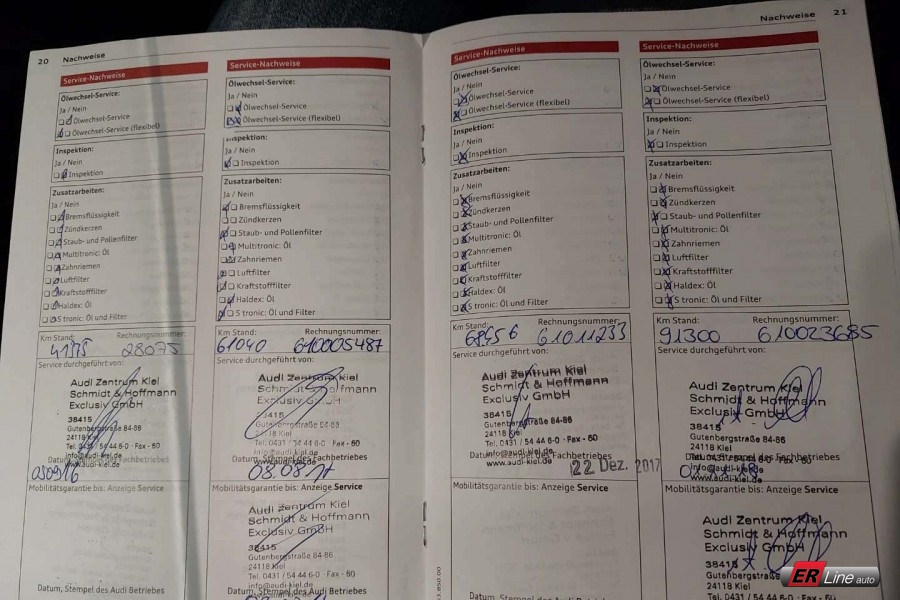 20 Nachweise
Service-Nachweise
Ölwechsel-Service:
Ja / Nein
Ölwechsel-Service
Ölwechsel-Service (flexibel)
Inspektion:
Ja / Nein
Inspektion
Zusatzarbeiten:
Ja / Nein
Bremsflüssigkeit
Zündkerzen
Staub- und Pollenfilter
Multitronic: Öl
Zahnriemen
Luftfilter
Kraftstofffilter
Haldex: Öl
S tronic: Öl und Filter
Km Stand: Rechnungsnummer:
28075
Service durchgeführt von:
Audi Zentrum Kiel
Schmidt & Hoffmann
Exclusiv GmbH
38415
Gutenbergstraße 84-86
24118 Kiel
Tel. 0431 / 54 44 6-0 · Fax - 60
info@audi-kiel.de
www.audi-kiel.de
Mobilitätsgarantie bis: Anzeige Service
Datum, Stempel des Audi Betriebes
Service-Nachweise
Ölwechsel-Service:
Ja / Nein
Ölwechsel-Service
Ölwechsel-Service (flexibel)
Inspektion:
Ja / Nein
Inspektion
Zusatzarbeiten:
Ja / Nein
Bremsflüssigkeit
Zündkerzen
Staub- und Pollenfilter
Multitronic: Öl
Zahnriemen
Luftfilter
Kraftstofffilter
Haldex: Öl
S tronic: Öl und Filter
Km Stand: Rechnungsnummer:
61040 610005487
Service durchgeführt von:
Audi Zentrum Kiel
Schmidt & Hoffmann
Exclusiv GmbH
38415
Gutenbergstraße 84-86
24118 Kiel
Tel. 0431 / 54 44 6-0 · Fax - 60
info@audi-kiel.de
www.audi-kiel.de
Datum, Stempel des Fachbetriebes
08.08.17
Mobilitätsgarantie bis: Anzeige Service
Audi Zentrum Kiel
Schmidt & Hoffmann
Exclusiv GmbH
38415
Gutenbergstraße 84-86
24118 Kiel
Tel. 0431 / 54 44 6-0 · Fax - 60
info@audi-kiel.de
Datum, Stempel des Audi Betriebes
Nachweise 21
Service-Nachweise
Ölwechsel-Service:
Ja / Nein
Ölwechsel-Service
Ölwechsel-Service (flexibel)
Inspektion:
Ja / Nein
Inspektion
Zusatzarbeiten:
Ja / Nein
Bremsflüssigkeit
Zündkerzen
Staub- und Pollenfilter
Multitronic: Öl
Zahnriemen
Luftfilter
Kraftstofffilter
Haldex: Öl
S tronic: Öl und Filter
Km Stand: Rechnungsnummer:
68456 61011233
Service durchgeführt von:
Audi Zentrum Kiel
Schmidt & Hoffmann
Exclusiv GmbH
38415
Gutenbergstraße 84-86
24118 Kiel
Tel. 0431 / 54 44 6-0 · Fax - 60
info@audi-kiel.de
www.audi-kiel.de
22 Dez. 2017
Mobilitätsgarantie bis: Anzeige Service
Datum, Stempel des Audi Betriebes
Service-Nachweise
Ölwechsel-Service:
Ja / Nein
Ölwechsel-Service
Ölwechsel-Service (flexibel)
Inspektion:
Ja / Nein
Inspektion
Zusatzarbeiten:
Ja / Nein
Bremsflüssigkeit
Zündkerzen
Staub- und Pollenfilter
Multitronic: Öl
Zahnriemen
Luftfilter
Kraftstofffilter
Haldex: Öl
S tronic: Öl und Filter
Km Stand: Rechnungsnummer:
91300 610023685
Service durchgeführt von:
Audi Zentrum Kiel
Schmidt & Hoffmann
Exclusiv GmbH
38415
Gutenbergstraße 84-86
24118 Kiel
Tel. 0431 / 54 44 6-0 · Fax - 60
info@audi-kiel.de
www.audi-kiel.de
Mobilitätsgarantie bis: Anzeige Service
Audi Zentrum Kiel
Schmidt & Hoffmann
Exclusiv GmbH
38415
Gutenbergstraße
24118 Kiel
Datum, Stempel des Audi Betriebes
ER Line auto